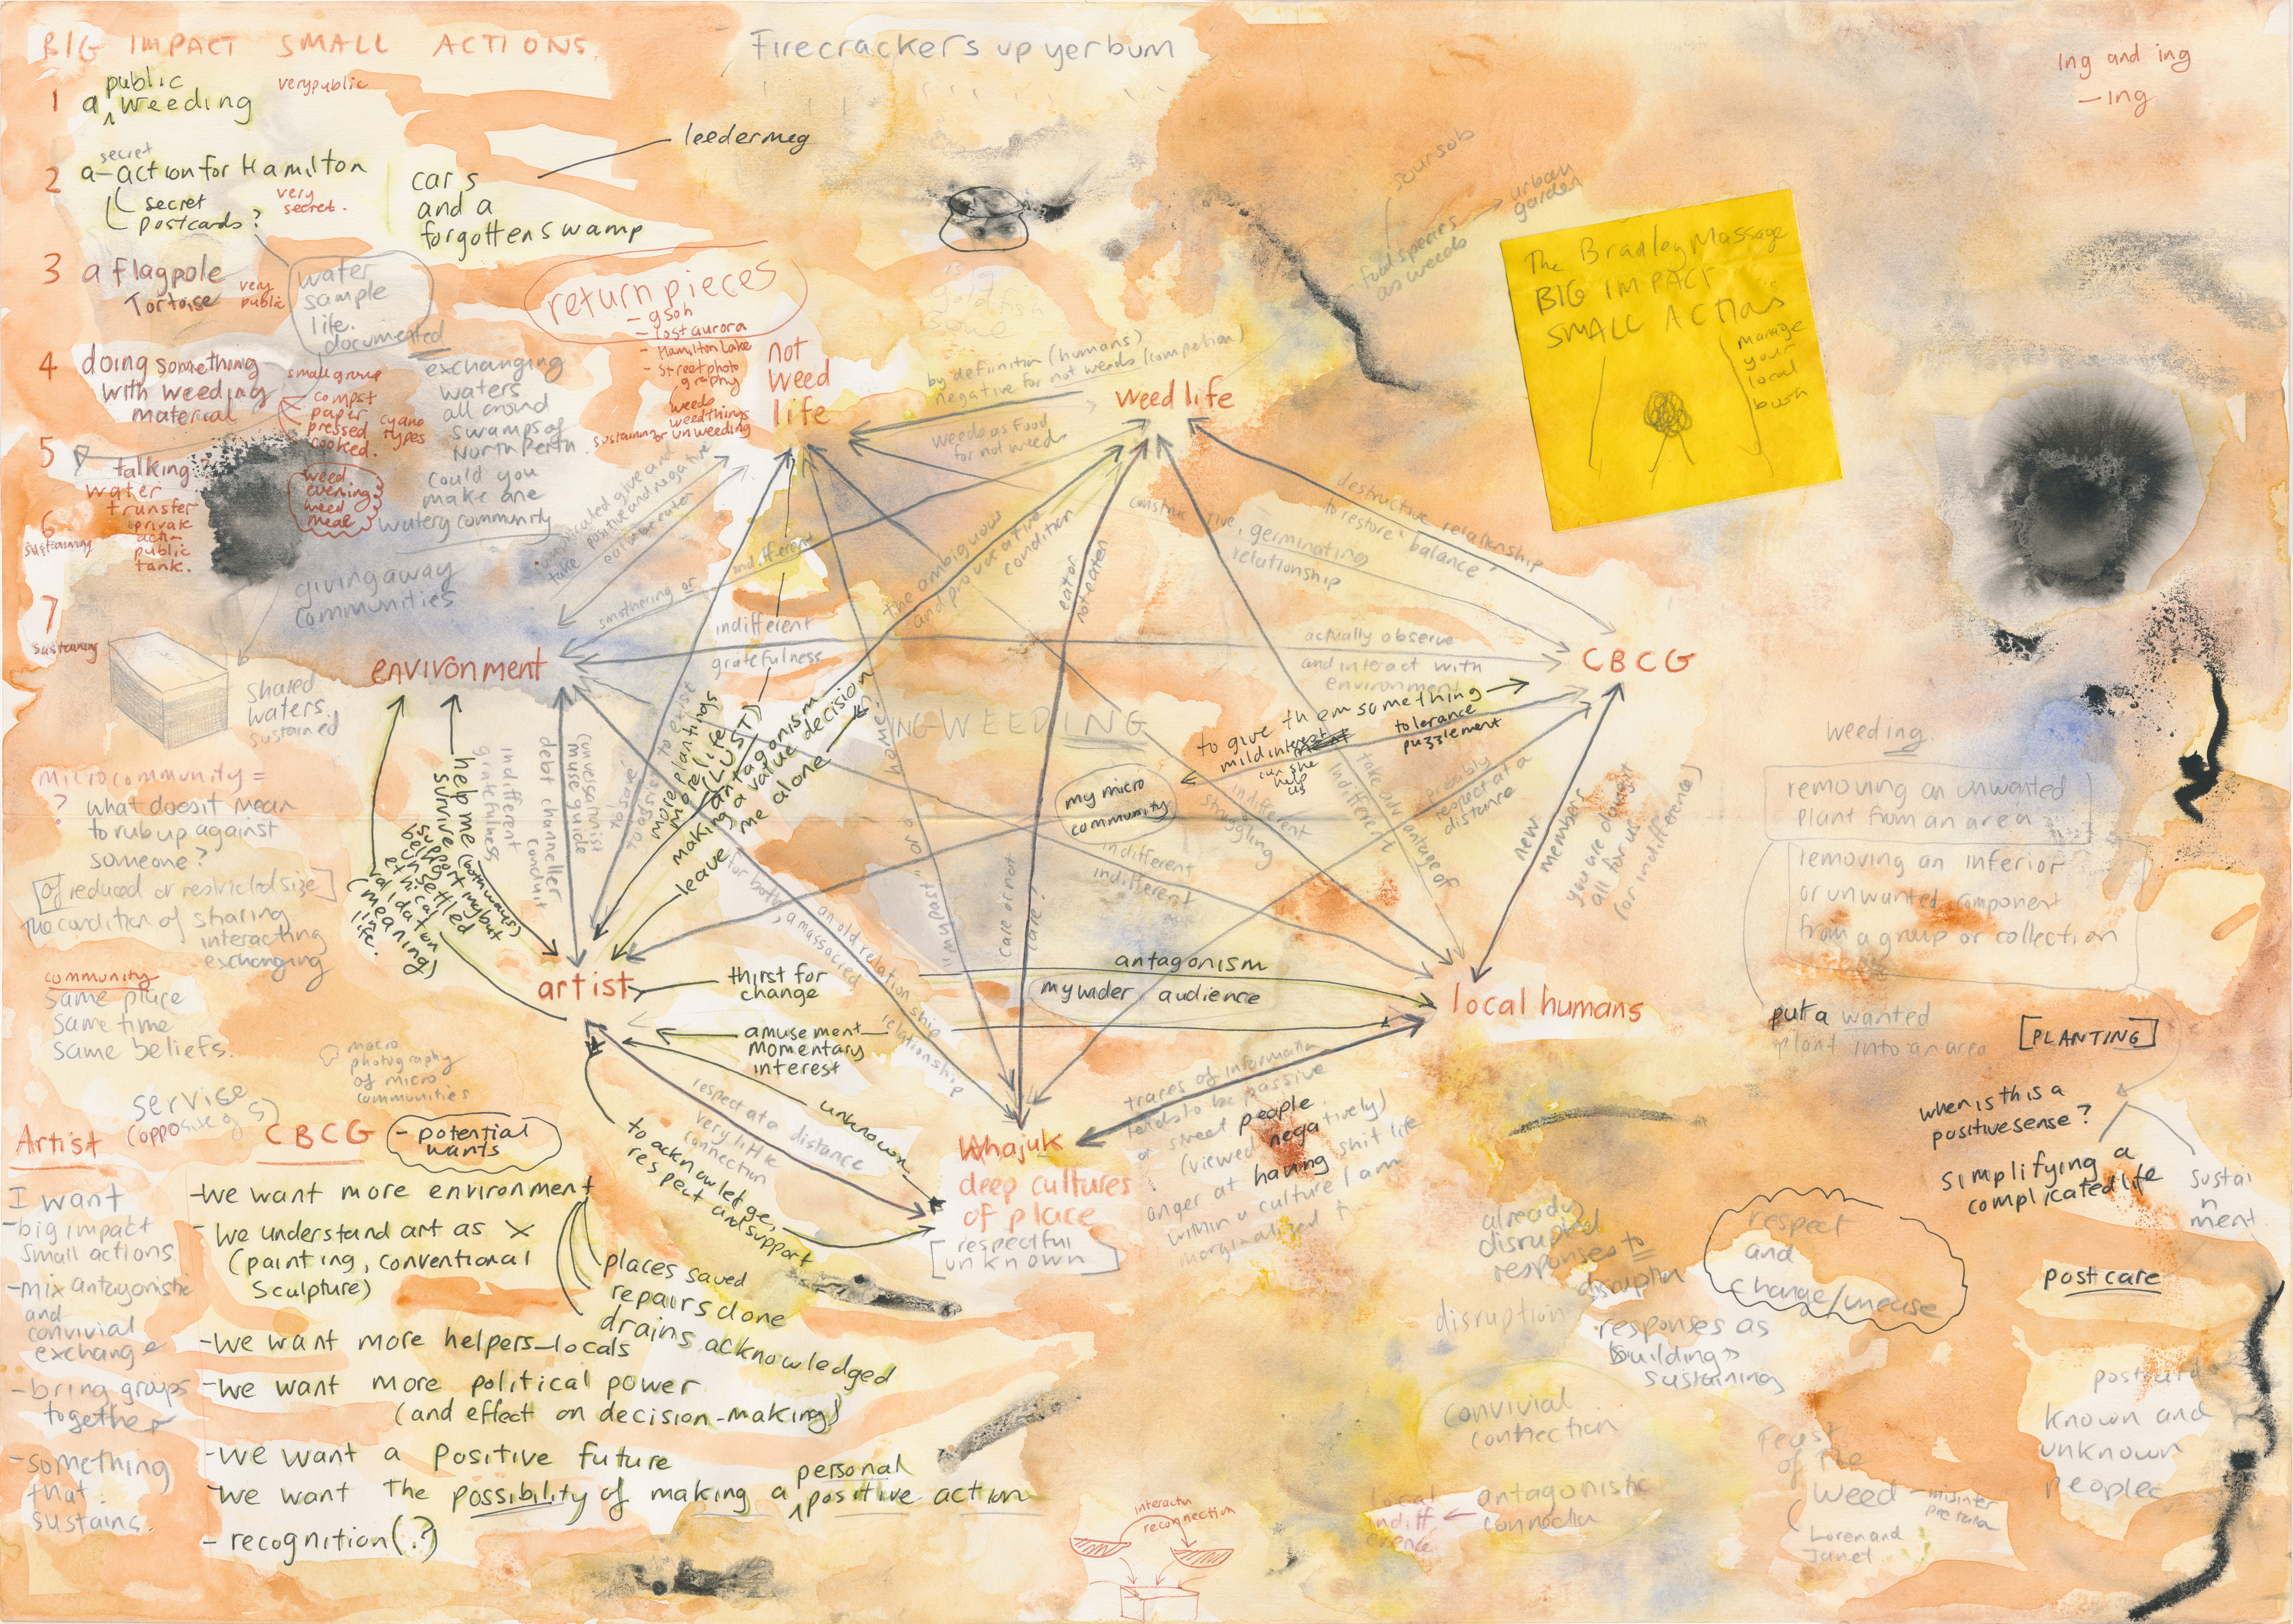 BIG IMPACT SMALL ACTIONS.
Firecrackers up yerbum
ing and ing
-ing
1 a public weeding
verypublic
2 a secret action for Hamilton
secret
postcards?
very
secret.
cars
and a
forgotten swamp
leedermeg
3 a flagpole
Tortoise
very
public
water
sample
life.
documented
return pieces
- gsoh
- lost aurora
- Hamilton Lake
- street photo
graphy
weeds
weedthings
sustaining or unweeding
4 doing something
with weeding
material
small group
compst
paper
pressed
cooked.
cyano
types
exchanging
waters
all around
swamps of
North Perth.
could you
make one
watery community
5
talking?
water
transfer
private
actn
public
tank.
weed
evening
weed
meal
6
sustaining
7
sustaining
giving away
communities
shared
waters.
sustained
not
weed
life
weed life
by definition (humans)
negative for not weeds (competion)
weeds as food
for not weeds
big
goldfish
soursob
food species
as weeds
urban
garden
The Bradley Massage
BIG IMPACT
SMALL ACTIONS
manage
your
local
bush
complicated give and
take positive and negative
eat or be eater
smothering or
indifferent
the ambiguous
and provocative
condition
eat or
not eaten
constructive, germinating
relationship
destructive relationship
to restore balance?
environment
indifferent
gratefulness
actually observe
and interact with
environment
CBCG
to give them something
mild interest
can she
help
us
tolerance
puzzlement
ING-WEEDING
my micro
community
help me
survive (commway)
support mybut
being unsettled
ethical
validation
(meaning)
in
life.
indifferent
gratefulness
debt channeller
conduit
conversationist
muse guide
to exist
more plantings
more life
(LUST)
making antagonism
a value decision
leave me alone
home.
indifferent
struggling
take advantage of
indifferent
probably
respect at a
distance
indifferent
indifferent
new
members
you are doing it
all for us
(or indifference)
for both, a massacred relationship
an old relation ship
"in my past" or a
care or not
care?
microcommunity =
? what does it mean
to rub up against
someone?
[of reduced or restricted size]
the condition of sharing
interacting
exchanging
community
same place
same time
same beliefs.
macro
photography
of micro
communities
weeding
removing an unwanted
plant from an area
removing an inferior
or unwanted component
from a group or collection
put a wanted
plant into an area
[PLANTING]
when is this a
positive sense?
simplifying a
complicated life
sustai
n
ment
artist
thirst for
change
antagonism
my wider audience
amusement
momentary
interest
local humans
unknown
respect at a distance
very little
connection
to acknowledge,
respect and support
Whajuk
deep cultures
of place
[respectful
unknown]
traces of information
tends to be passive
or street people
(viewed negatively)
anger at having shit life
within a culture I am
marginalized
service
(opposite of)
Artist
I want
-big impact
small actions.
-mix antagonistic
and
convivial
exchange
-bring groups
together
-something
that
sustains.
CBCG
-potential
wants
-we want more environment
-we understand art as
(painting, conventional
sculpture)
places saved
repairs done
drains acknowledged
-we want more helpers-locals
-we want more political power
(and effect on decision-making)
-we want a positive future
-we want the possibility of making a personal positive action
-recognition(?)
already
disrupted
responses to
disruption
disruption
respect
and
change/unease
responses as
building
sustaining
post care
postcard
known and
unknown
people
convivial
connection
antagonistic
connection
local
indiff
erence
Feast
of the
weed
Loren and
Janet
interactn
reconnection